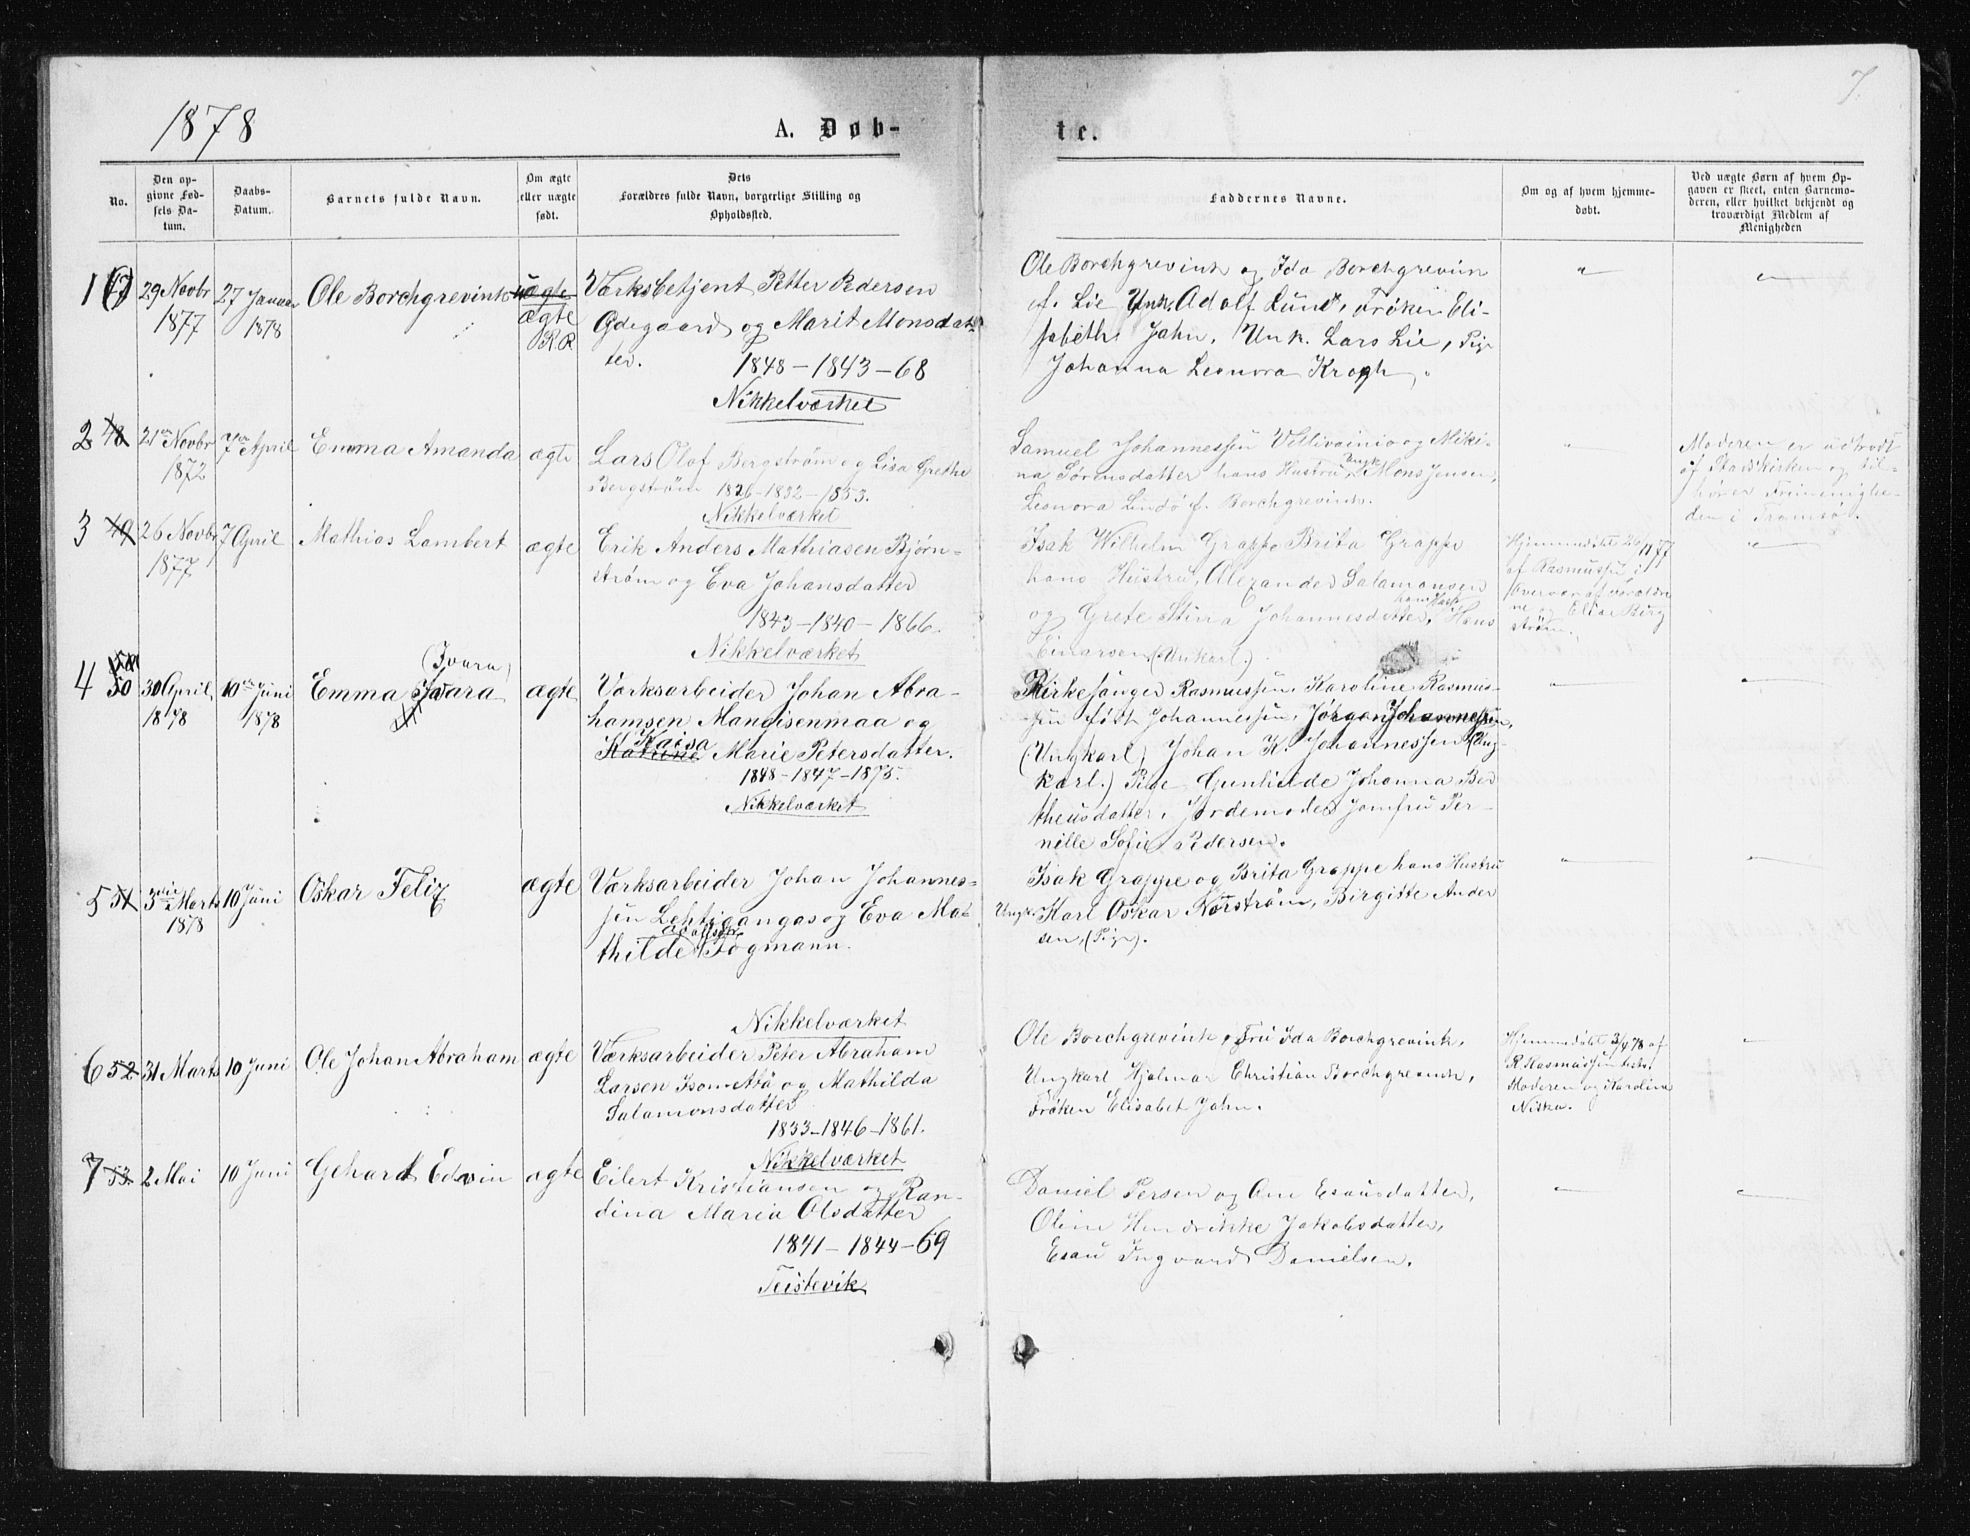 1878
A. Døb-
te.
7.
No.
Den op-
givne Fød-
sels Da-
tum.
Daabs-
Datum.
Barnets fulde Navn.
Om ægte
eller uægte
født.
Dets
Forældres fulde Navn, borgerlige Stilling og
Opholdssted.
Faddernes Navne.
Om og af hvem hjemme-
døbt.
Ved uægte Børn af hvem Op-
gaven er skeet, enten Barnemo-
deren, eller hvilket bekjendt og
troværdigt Medlem af
Menigheden
1
29 Novbr
1877
27 Januar
1878
Ole Borchgrevink
uægte
ægte
R.R
Værksbetjent Petter Pedersen
Ødegaard og Marit Monsdat-
ter.
1848-1843-68
Nikkelværket
Ole Borchgrevink og Ida Borchgrevink
f. Lie Unk. Adolf Lund, Frøken Eli-
sabeth Jahn, Unk. Lars Lie, Pige
Johanna Leonora Krogh.
2 48
21de Novbr
1872
7de April
Emma Amanda
ægte
Lars Olof Bergstrøm og Lisa Grethe
Bergstrøm 1826-1832-1853.
Nikkelværket
Samuel Johannessen Vettivainio og Miki-
na Sørensdatter hans Hustru, Ungk. Mons Jensen,
Leonora Lindø f. Borchgrevink.
Moderen er udtraadt
af Statskirken og til-
hører Frimenighe-
den i Tromsø.
3 49
26 Novbr
1877
7 April
Mathias Lambert
ægte
Erik Anders Mathiasen Bjørn-
strøm og Eva Johansdatter
1843-1840-1866.
Nikkelværket
Isak Wilhelm Grappe Brita Grappe
hans Hustru, Alexander Salamonsen
og Grete Stina Johannesdatter, hans Hustr. Hans
Einarsen (Unkarl.)
Hjemmedøbt 26/11 77
af Rasmussen i
Overvær af Forældre
ne og Elias Berg
strøm.
4 50
30 April
1878
10de Juni
1878
(Ivara)
Emma Ivara
ægte
Værksarbeider Johan Abra-
hamsen Mangisenmaa og
Katrine Kaisa Marie Petersdatter.
1848-1847-1875.
Nikkelværket
Kirkesanger Rasmussen, Karoline Rasmus-
sen født Johannessen, Jørgen Johannessen,
(Ungkarl) Johan K. Johannessen (Ung-
karl.) Pige Gunhilde Johanna Ber
theusdatter, Jordemoder Jomfru Per-
nille Sofie Pedersen.
5 51
3die Marts
1878
10 Juni
Oskar Felix
ægte
Værksarbeider Johan Johannes-
sen Lehtigangas og Eva Ma-
thilde Fogmann.
Nikkelværket
Isak Grappe og Brita Grappe hans Hustru
Ungk. Karl Oskar Norstrøm, Birgitte Ander
sen, (Pige).
6 52
31 Marts
10 Juni
Ole Johan Abraham
ægte
Værksarbeider Peter Abraham
Larsen Isomettä og Mathilda
Salamonsdatter
1833-1846-1861.
Nikkelværket
Ole Borchgrevink, Fru Ida Borchgrevink,
Ungkarl Hjalmar Christian Borchgrevink,
Frøken Elisabet Jahn.
Hjemmedøbt 3/4 78 af
R. Rasmussen
Moderen og Karoline
Niska.
7 53.
2 Mai
10 Juni
Gehard Edvin
ægte
Eilert Kristiansen og Ran-
dina Maria Olsdatter
1841-1844-69
Teistevik
Daniel Persen og Ane Esausdatter,
Oline Hendrikke Jakobsdatter,
Esau Ingvard Danielsen.